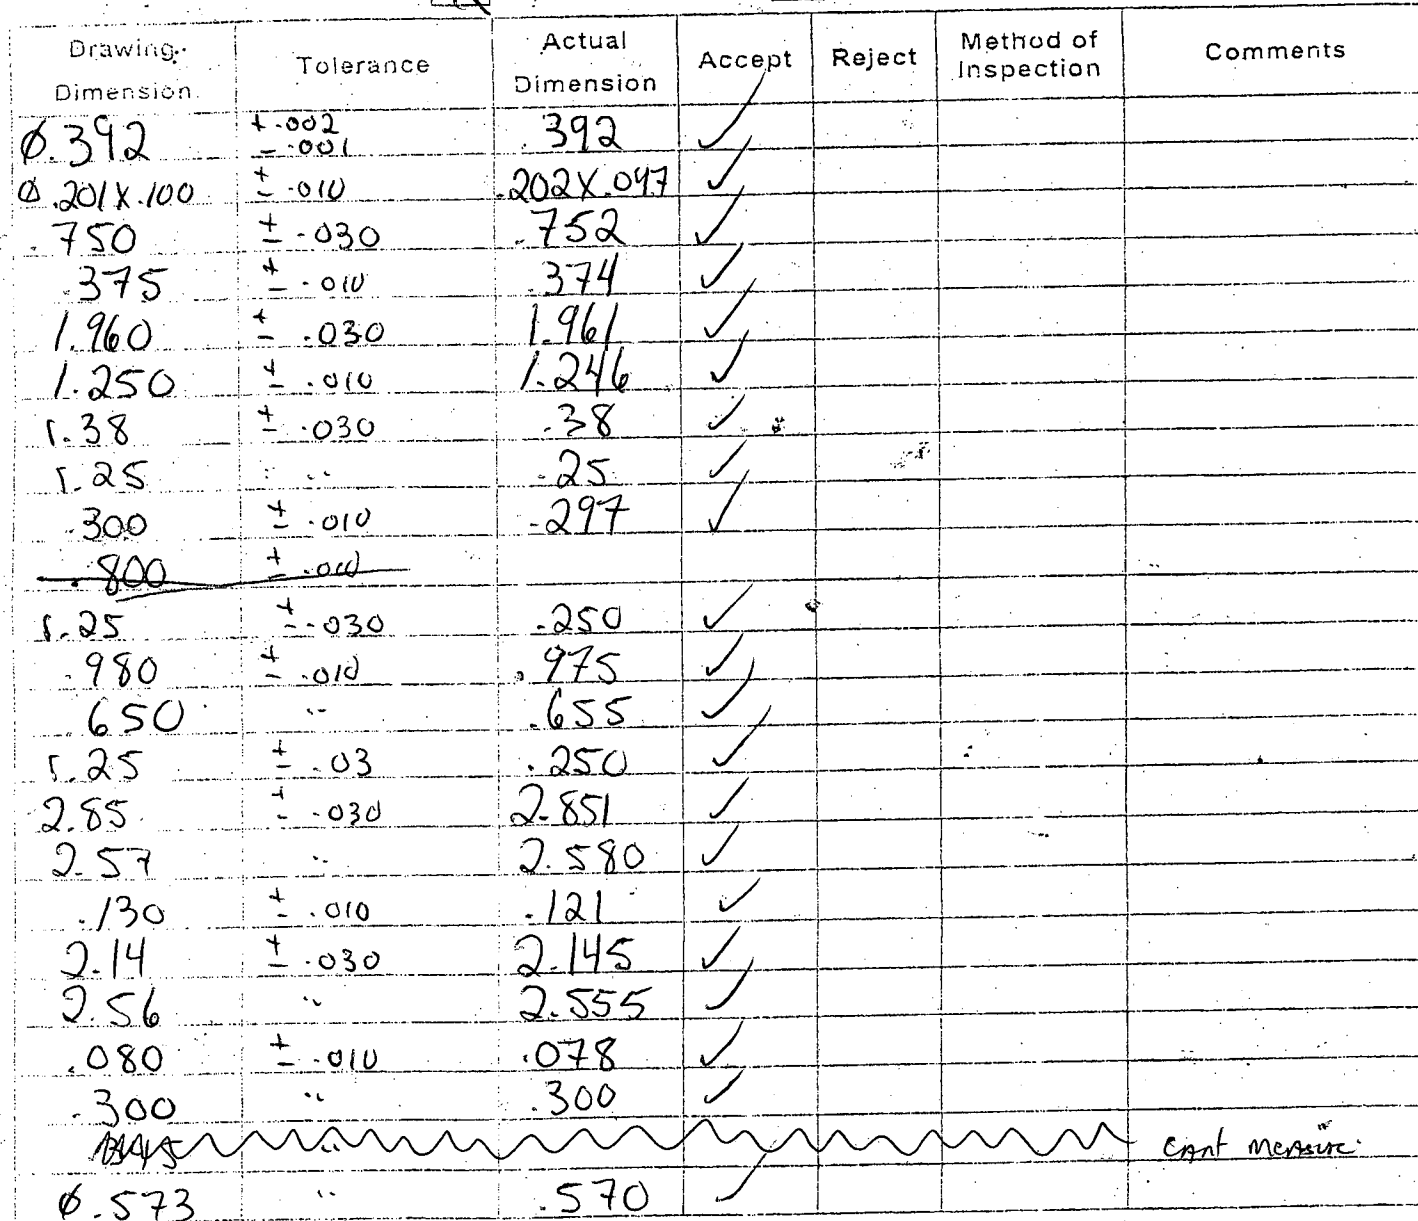 Drawing Dimension Tolerance Actual Dimension Accept Reject Method of Inspection Comments
Ø.392 +.002 -.001 .392 ✓
Ø.201X.100 ±.010 .202X.097 ✓
.750 ±.030 .752 ✓
.375 ±.010 .374 ✓
1.960 ±.030 1.961 ✓
1.250 ±.010 1.246 ✓
r.38 ±.030 .38 ✓
r.25 " .25 ✓
.300 ±.010 .297 ✓
.800 ±.010
r.25 ±.030 .250 ✓
.980 ±.010 .975 ✓
.650 " .655 ✓
r.25 ±.03 .250 ✓
2.85 ±.030 2.851 ✓
2.57 " 2.580 ✓
.130 ±.010 .121 ✓
2.14 ±.030 2.145 ✓
2.56 " 2.555 ✓
.080 ±.010 .078 ✓
.300 " .300 ✓
" CAnt MeAsure.
Ø.573 " .570 ✓